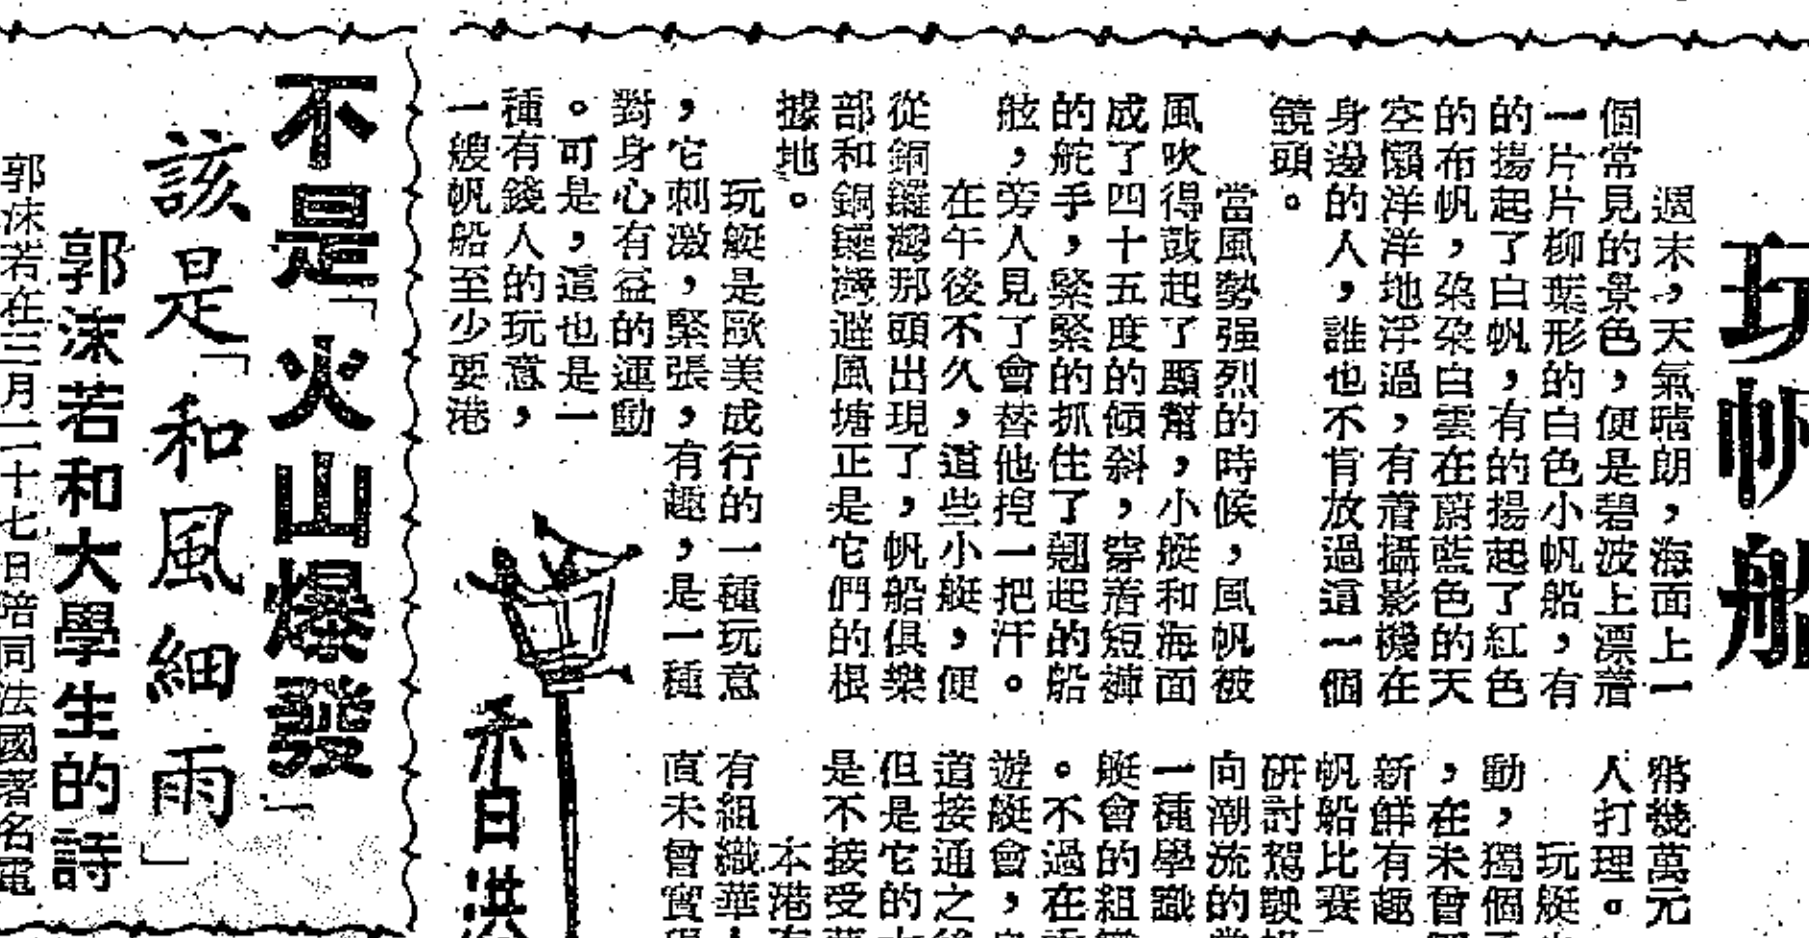 玩帆船
週末，天氣晴朗，海面上一
個常見的景色，便是碧波上漂着
一片片柳葉形的白色小帆船，有
的揚起了白帆，有的揚起了紅色
的布帆，朶朶白雲在蔚藍色的天
空懶洋洋地浮過，有着攝影機在
身邊的人，誰也不肯放過這一個
鏡頭。
當風勢强烈的時候，風帆被
風吹得鼓起了顋幫，小艇和海面
成了四十五度的傾斜，穿着短褲
的舵手，緊緊的抓住了翹起的船
舷，旁人見了會替他揑一把汗。
在午後不久，這些小艇，便
從銅鑼灣那頭出現了，帆船俱樂
部和銅鑼灣避風塘正是它們的根
據地。
玩艇是歐美成行的一種玩意
，它刺激，緊張，有趣，是一種
對身心有益的運動
。可是，這也是一
種有錢人的玩意，
一艘帆船至少要港
幣幾萬元
人打理。
玩艇
動，獨個
，在未曾
新鮮有趣
帆船比賽
研討駕駛
向潮流的
一種學識
艇會的組
。不過在
遊艇會，
道接通之
但是它的
是不接受
本港
有組織華
直未曾實
不是「火山爆發」
該是「和風細雨」
郭沫若和大學生的詩
郭沫若在三月二十七日陪同法國著名電